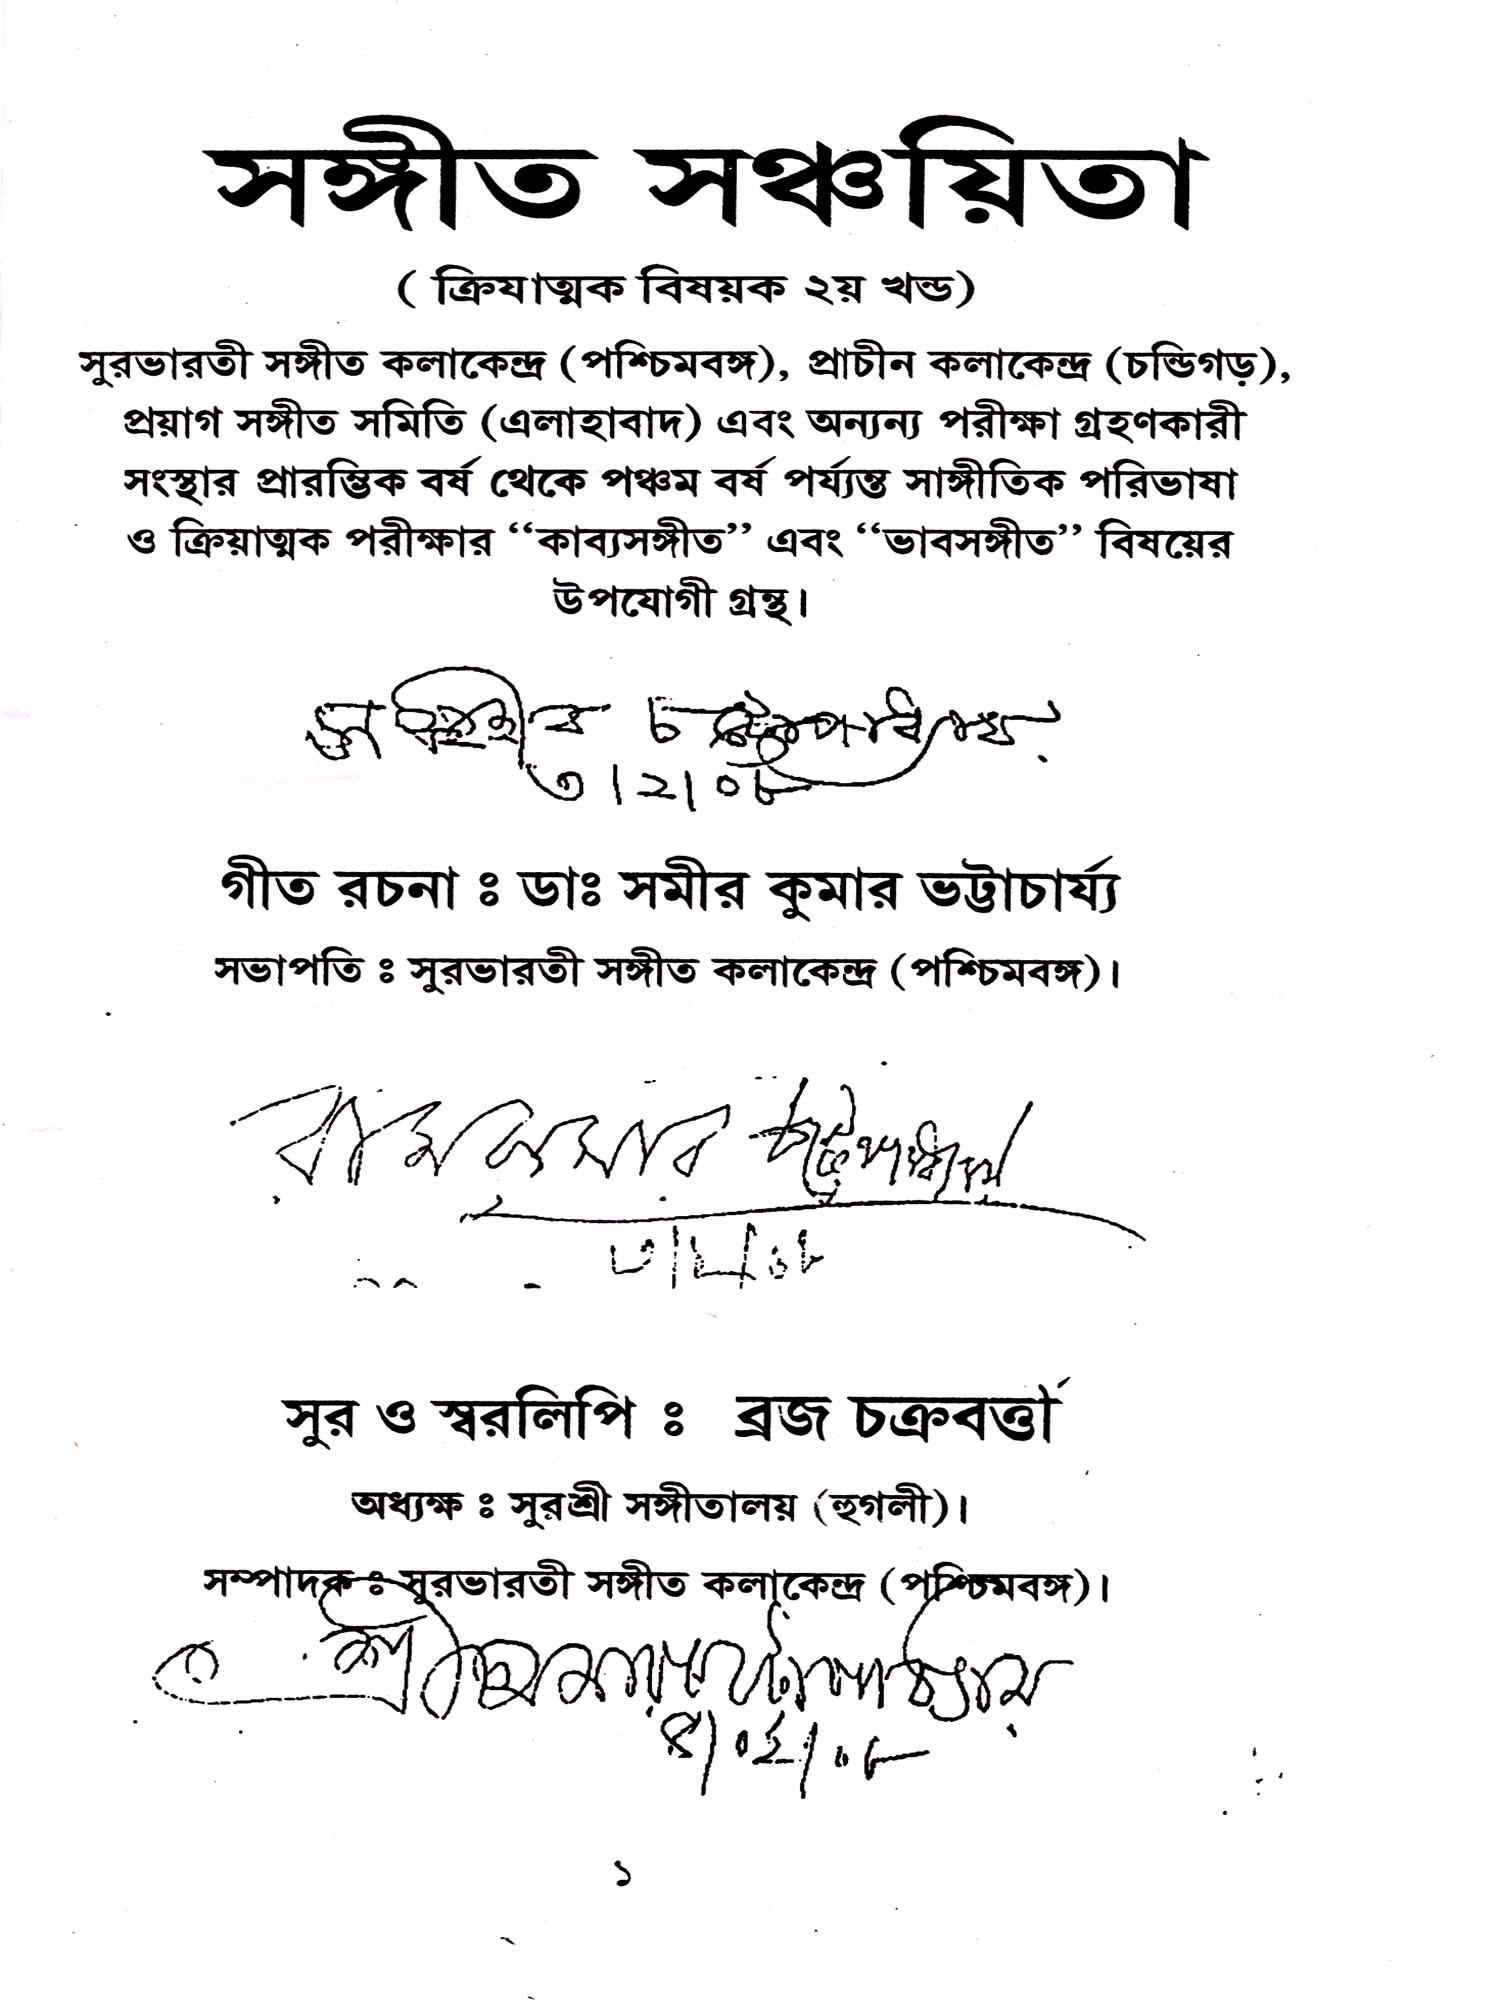 সঙ্গীত সঞ্চয়িতা
( ক্রিযাত্মক বিষয়ক ২য় খন্ড)
সুরভারতী সঙ্গীত কলাকেন্দ্র (পশ্চিমবঙ্গ), প্রাচীন কলাকেন্দ্র (চন্ডিগড়),
প্রয়াগ সঙ্গীত সমিতি (এলাহাবাদ) এবং অন্যন্য পরীক্ষা গ্রহণকারী
সংস্থার প্রারম্ভিক বর্ষ থেকে পঞ্চম বর্ষ পর্য্যন্ত সাঙ্গীতিক পরিভাষা
ও ক্রিয়াত্মক পরীক্ষার “কাব্যসঙ্গীত” এবং “ভাবসঙ্গীত” বিষয়ের
উপযোগী গ্রন্থ।
চট্টোপাধ্যায়
৩|২|০৮
গীত রচনা ঃ ডাঃ সমীর কুমার ভট্টাচার্য্য
সভাপতি ঃ সুরভারতী সঙ্গীত কলাকেন্দ্র (পশ্চিমবঙ্গ)।
রামকুমার চট্টোপাধ্যায়
সুর ও স্বরলিপি ঃ ব্রজ চক্রবর্ত্তী
অধ্যক্ষ ঃ সুরশ্রী সঙ্গীতালয় (হুগলী)।
সম্পাদক ঃ সুরভারতী সঙ্গীত কলাকেন্দ্র (পশ্চিমবঙ্গ)।
১